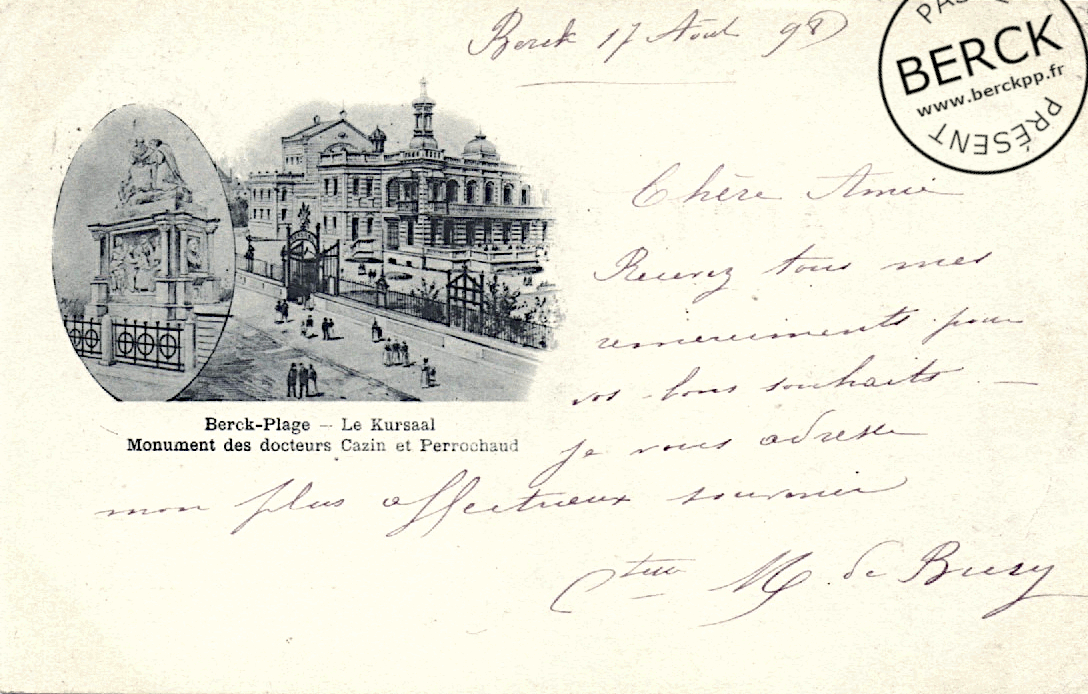 Berck 17 Août 98
PAS
BERCK
www.berckpp.fr
PRÉSENT
Chère Amie
Recevez tous mes
remerciments pour
vos bons souhaits —
je vous adresse
Berck-Plage — Le Kursaal
Monument des docteurs Cazin et Perrochaud
mon plus affectueux souvenir
Ctesse M. de